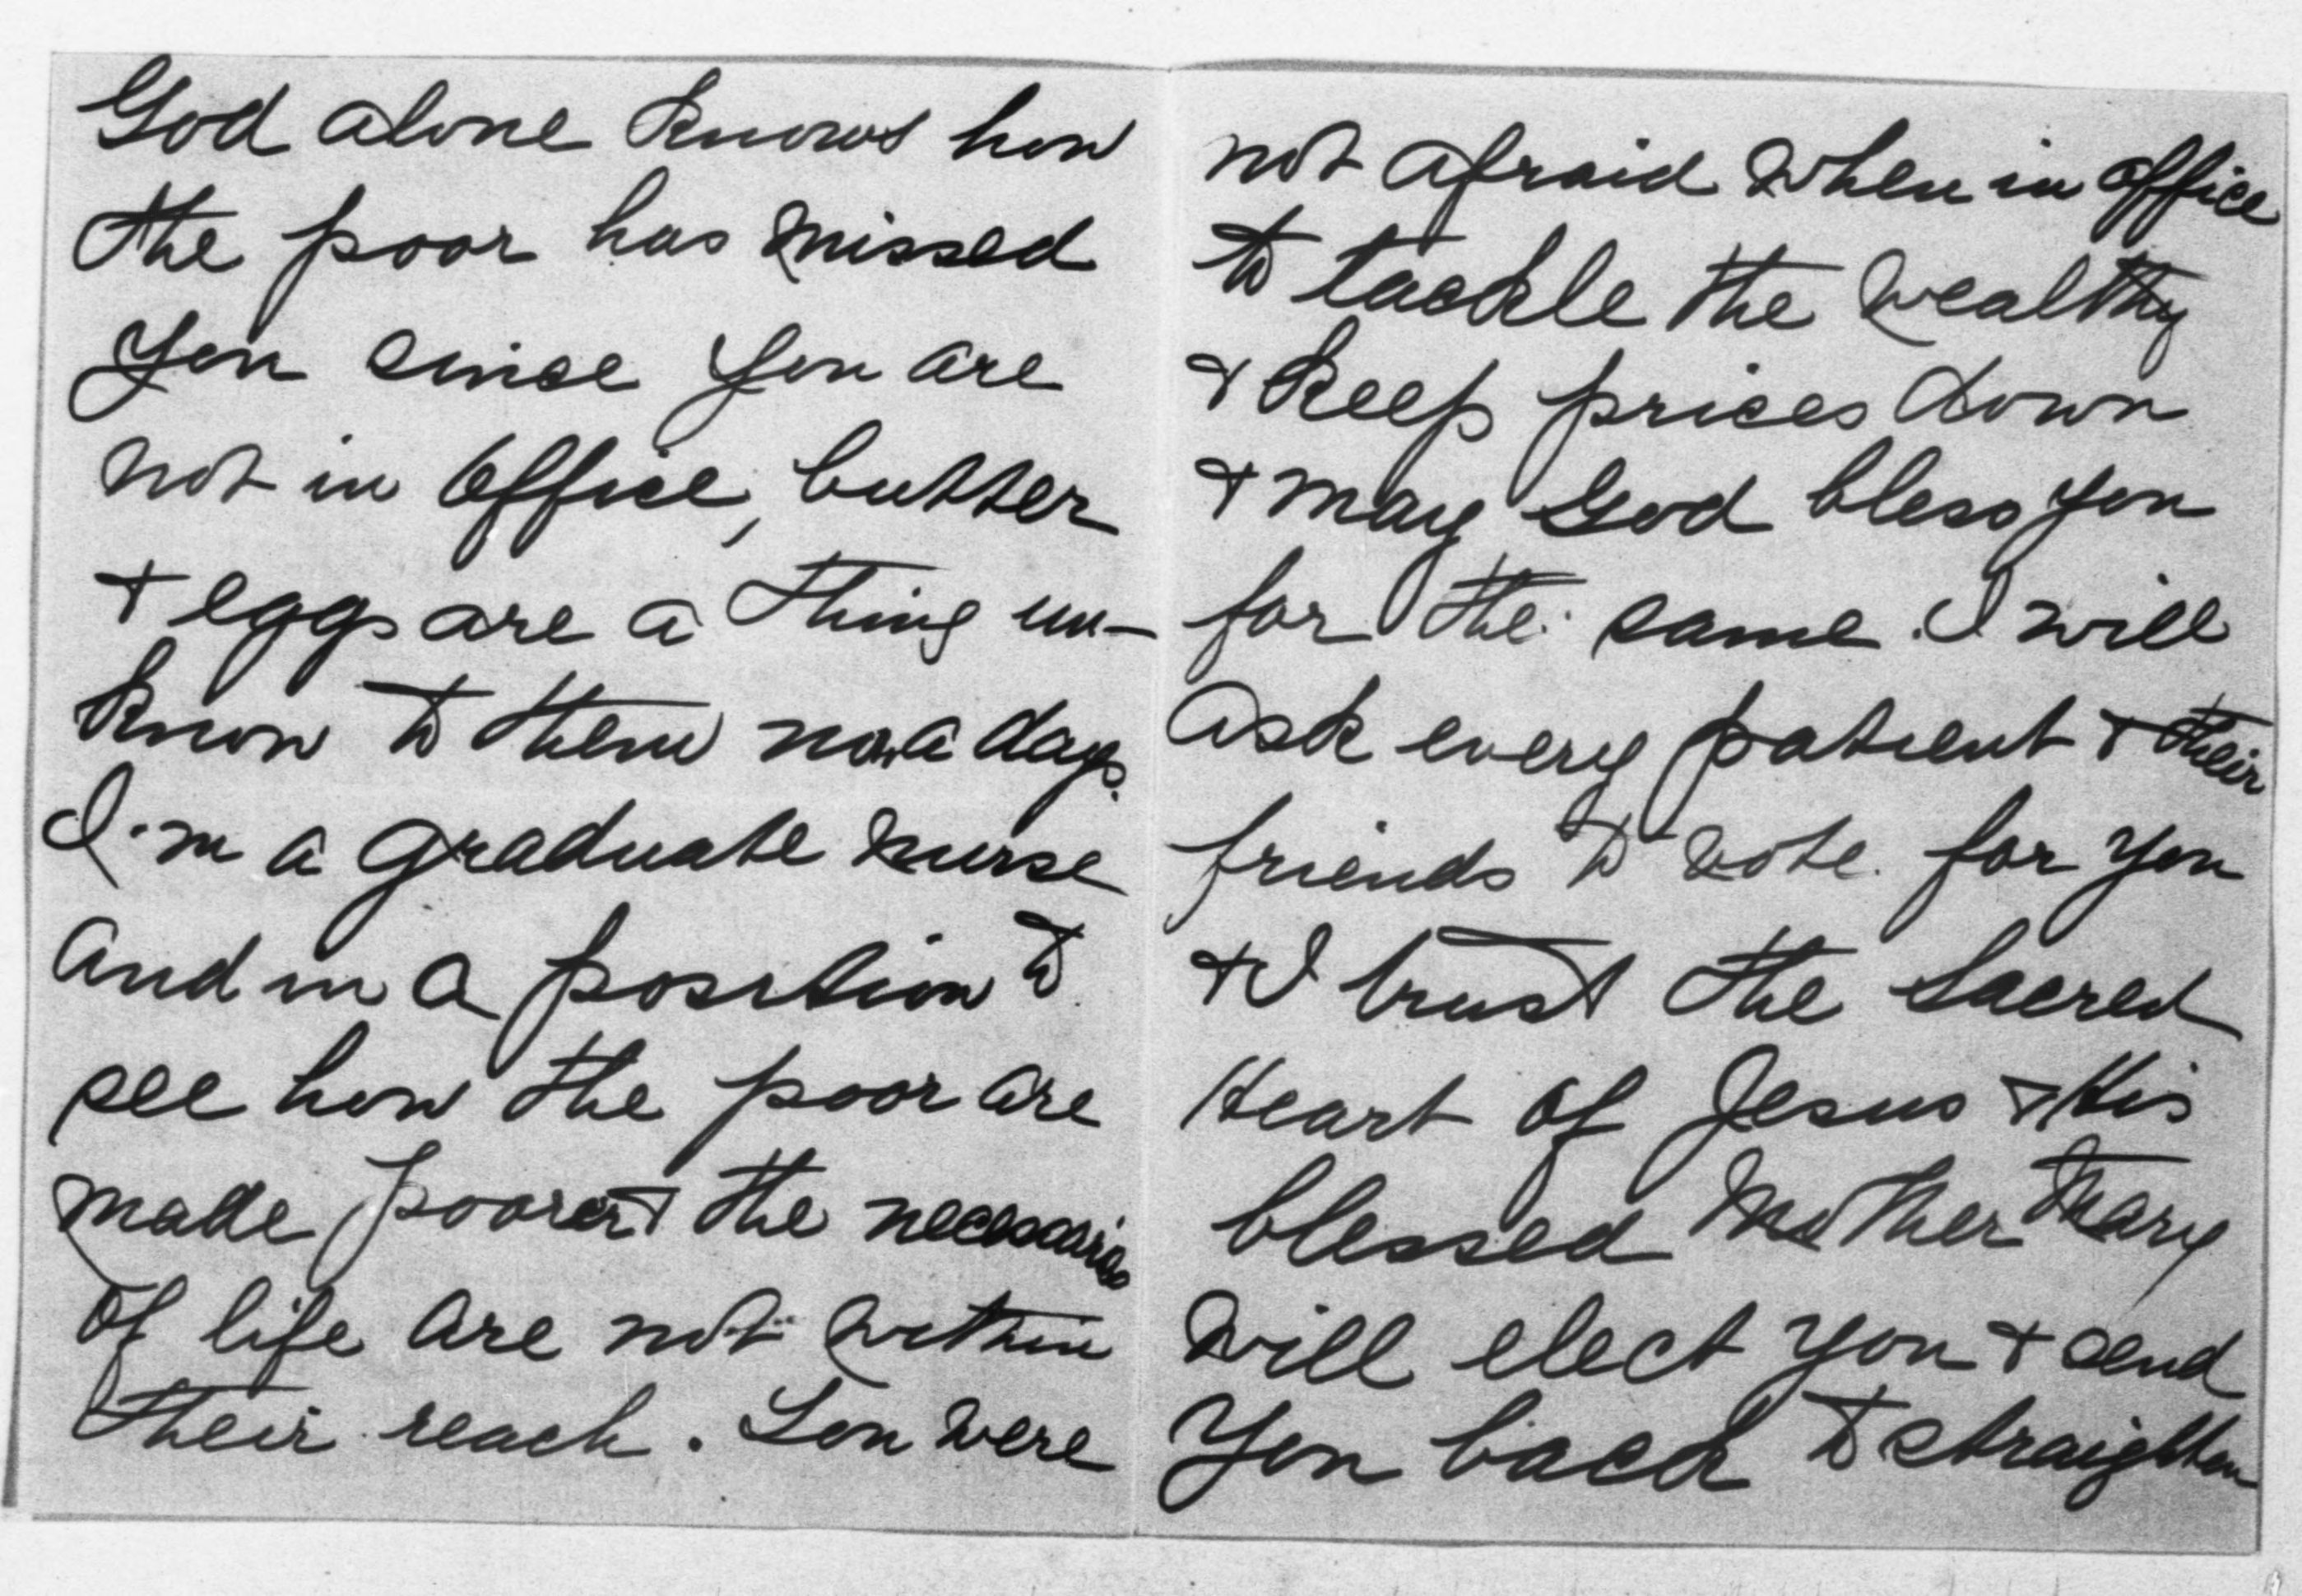 God alone knows how
the poor has missed
you since you are
not in office, butter
& eggs are a thing un-
known to them now a days.
I'm a graduate nurse
and in a position to
see how the poor are
made poorer & the necessaries
of life are not within
their reach. You were
not afraid when in office
to tackle the wealthy
& keep prices down
& may God bless you
for the same. I will
ask every patient & their
friends to vote for you
& I trust the Sacred
Heart of Jesus & His
blessed Mother Mary
will elect you & send
you back to straighten